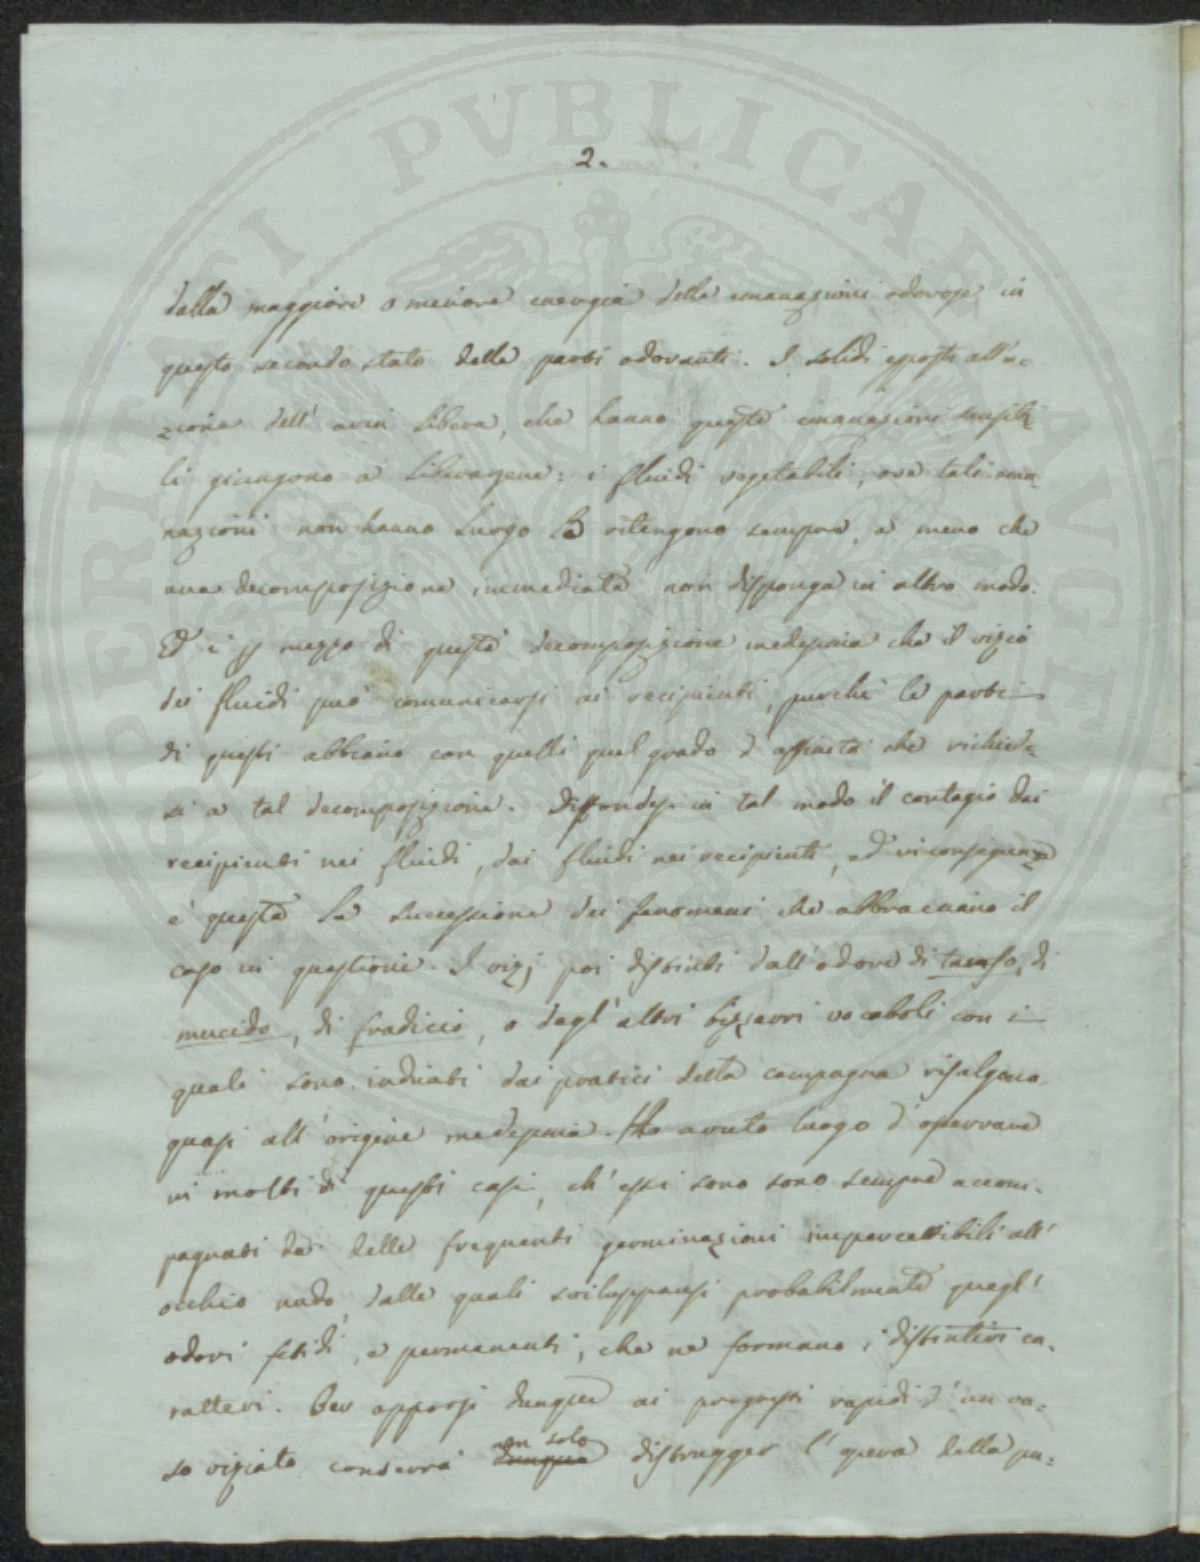 2.
dalla maggiore o minore energia delle emanazioni odorose in
questo secondo stato delle parti odoranti. I solidi esposti all'a-
zione dell'aria libera, che hanno queste emanazioni sensibi
li giungono a liberarsene: i fluidi vegetabili, ove tali ema
nazioni non hanno luogo le ritengono sempre, a meno che
una decomposizione immediata non disponga in altro modo.
Ed è p mezzo di questa decomposizione medesima che il vizio
dei fluidi può comunicarsi ai recipienti, purchè le parti
di questi abbiano con quelli quel grado d'affinità che richied=
si a tal decomposizione. Diffondesi in tal modo il contagio dai
recipienti nei fluidi, dai fluidi nei recipienti, ed in conseguenza
è questa la successione dei fenomeni che abbracciano il
caso in questione. I vizj poi distinti dall'odore di tanfo, di
mucido, di fradicio, o degl'altri bizzarri vocaboli con i
quali sono indicati dai pratici della campagna risalgono
quasi all'origine medesima. Ho avuto luogo d'osservare
in molti di questi casi, ch'essi sono sono sempre accom-
pagnati da delle frequenti germinazioni impercettibili all'
occhio nudo, dalle quali sviluppansi probabilmente quegl'
odori fetidi, e permanenti, che ne formano i distintivi ca-
ratteri. Per opporsi dunque ai progressi rapidi d'un va-
non solo
so viziato converrà dunque distrugger l'opera della pu=